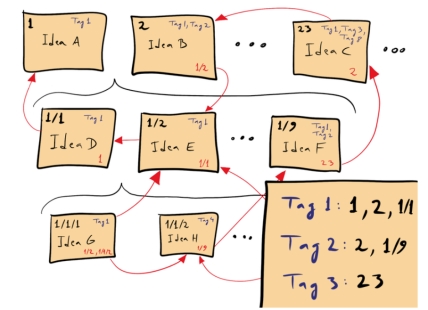 1 Tag 1
Idea A
2 Tag 1, Tag 2
Idea B
1/2
23 Tag 1, Tag 3,
Tag 8
Idea C
2
1/1 Tag 1
Idea D
1
1/2 Tag 1
Idea E
1/1
1/9 Tag 1,
Tag 2
Idea F
23
1/1/1 Tag 1
Idea G
1/2,
1/1/2 Tag 4
Idea H
1/9
Tag 1: 1, 2, 1/1
Tag 2: 2, 1/9
Tag 3: 23